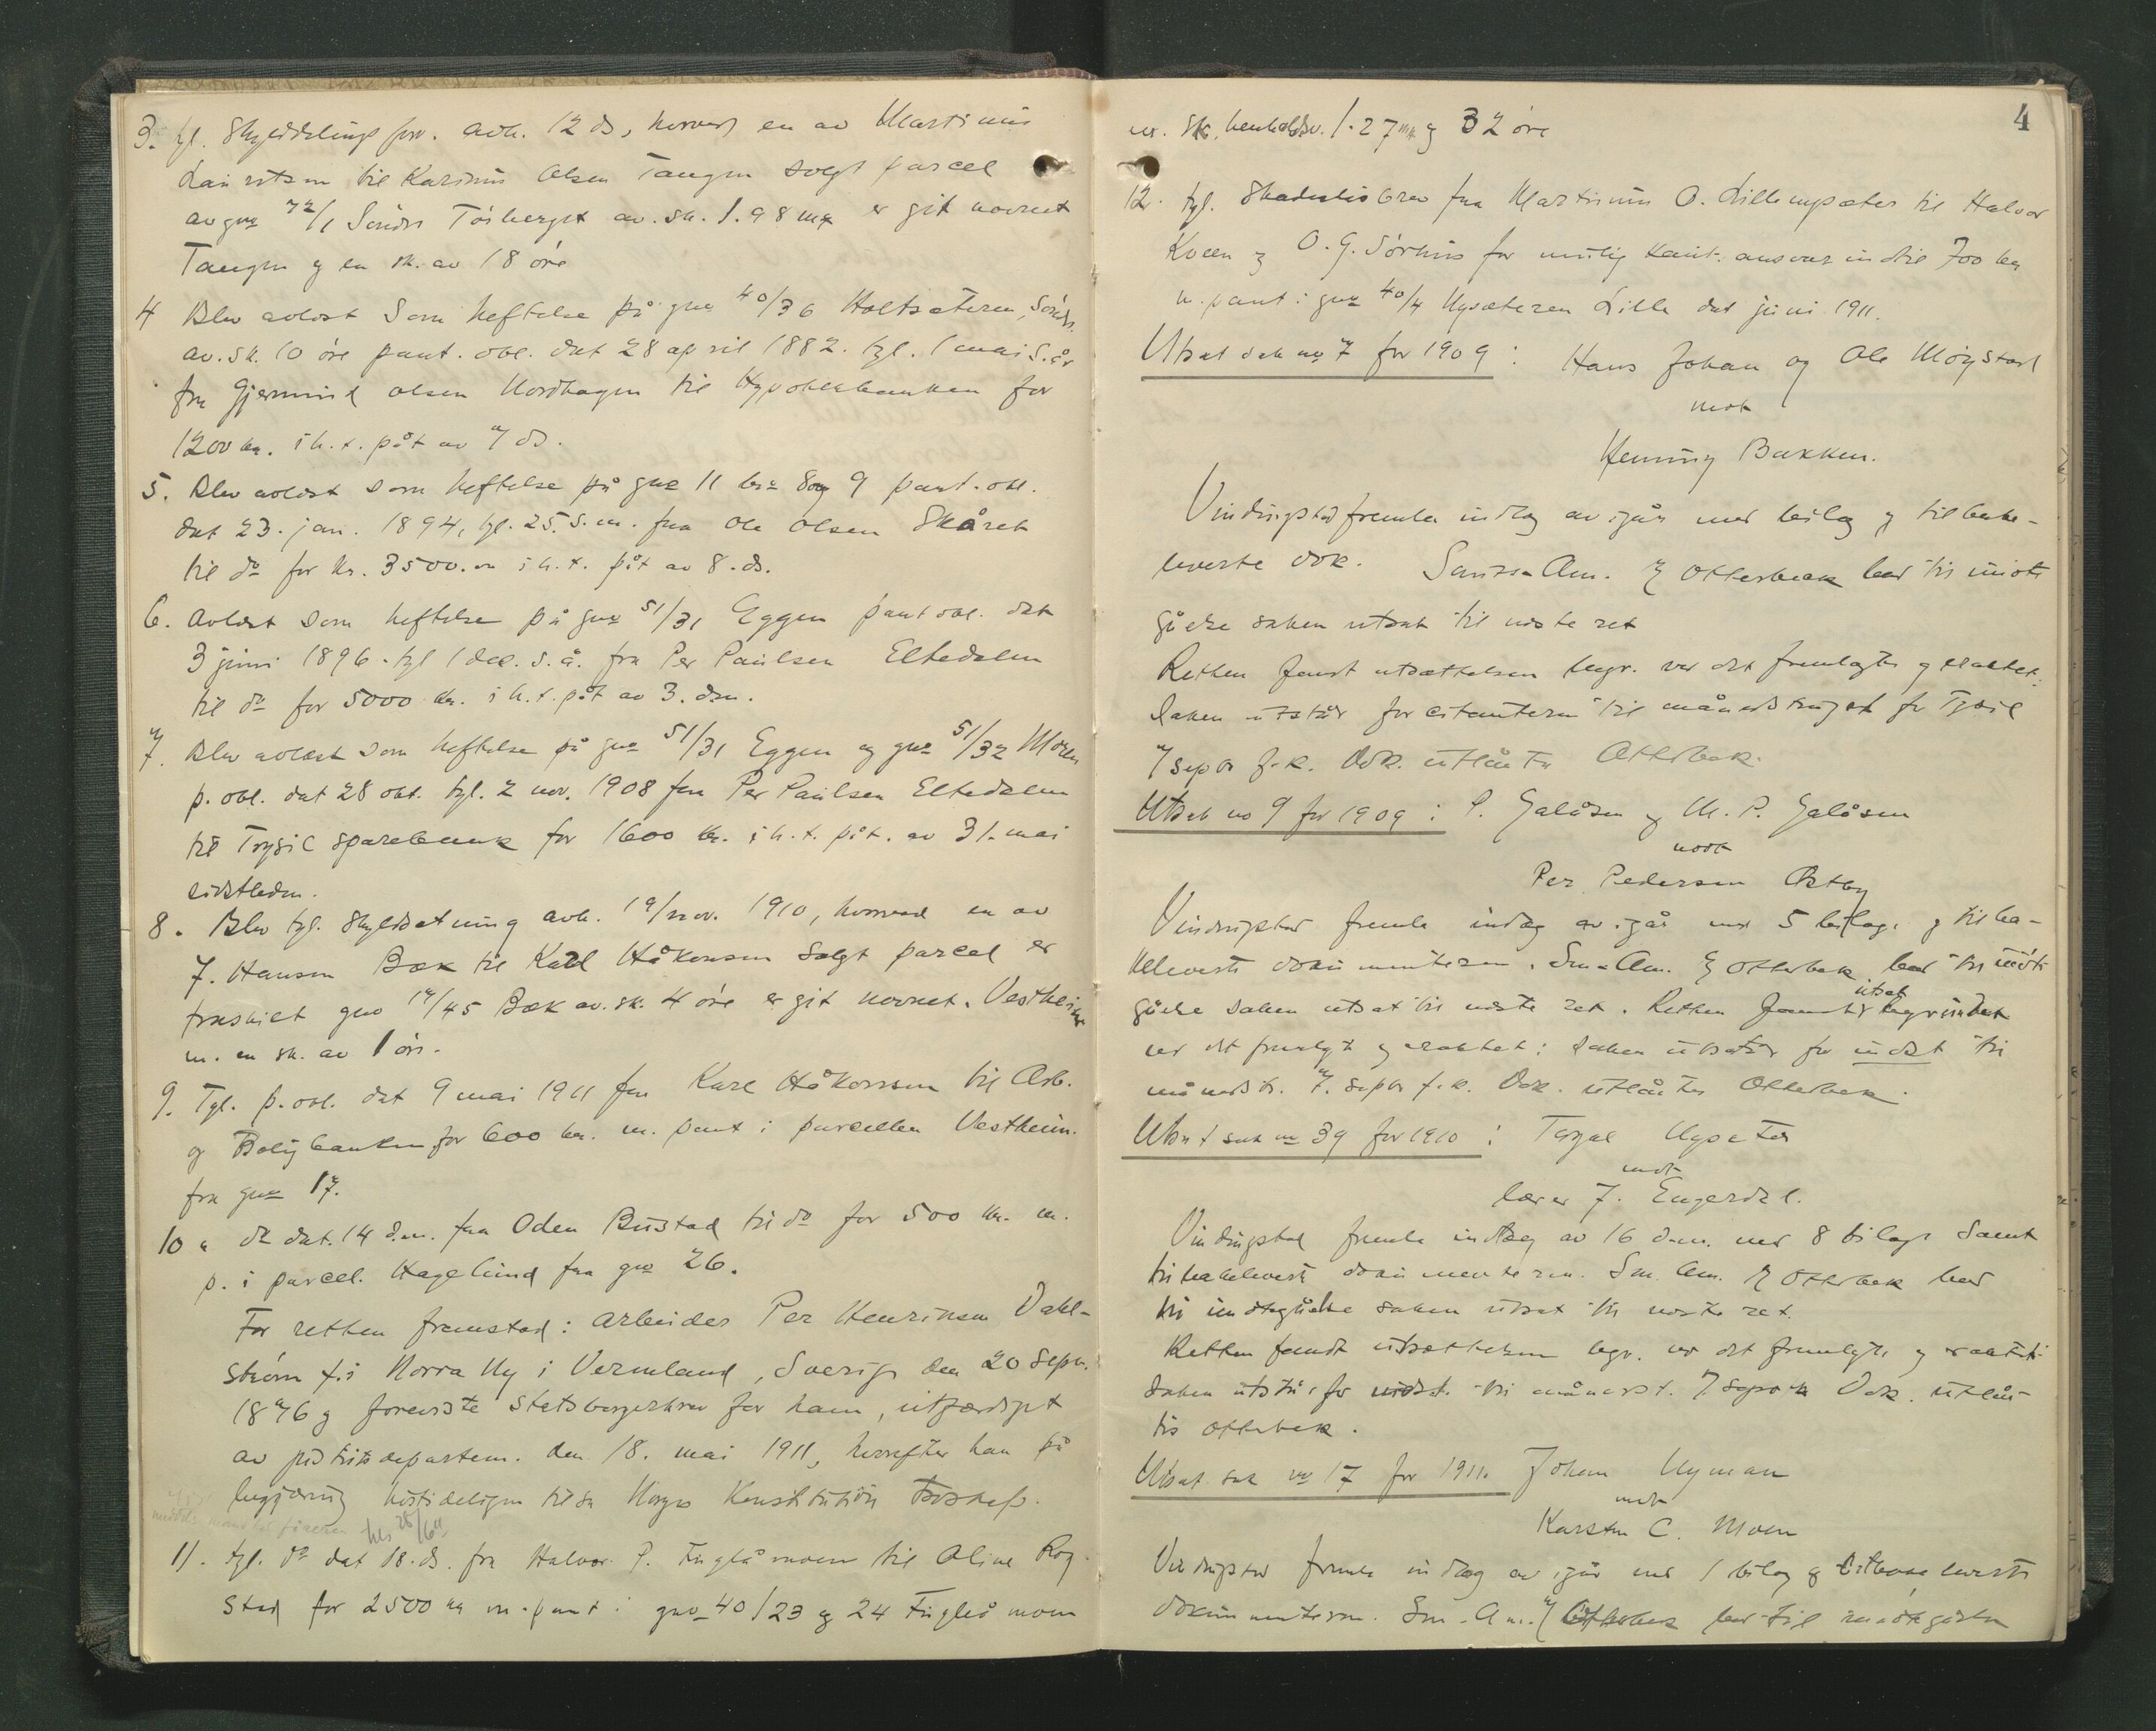 3. tgl. Skylddelings forr. avh. 12 ds, hvorved en av Martinus
Lauritsen til Karinius Olsen Tangen solgt parcel
av gno 72/1 Søndre Törberget av. sk. 1.98 mk er git navnet
Tangen og en sk. av 18 øre
4 Blev avlöst som heftelse på gno 40/36 Holtsæteren, Søndr.
av. sk. 10 öre pant. obl. dat 28 april 1882. tgl. 1 mai s. år
fra Gjermund Olsen Nordhagen til Hypothekbanken for
1200 kr. i h. t. påt av 7 ds.
5. Blev avlöst som heftelse på gno 11 bno 8 og 9 pant. obl.
dat 23. jan. 1894, tgl. 25. s. m. fra Ole Olsen Skåret
til do for kr. 3500. i h. t. påt av 8. ds.
6. Avlöst som heftelse på gno 51/31 Eggen pant obl. dat
3 juni 1896. tgl 1 dec. s. å. fra Per Paulsen Eltedalen
til do for 5000 kr. i h. t. påt av 3. dsm.
7. Blev avlöst som heftelse på gno 51/31 Eggen og gno 51/32 Moren
p. obl. dat 28 okt. tgl. 2 nov. 1908 fra Per Paulsen Eltedalen
til Trysil sparebank for 1600 kr. i h. t. påt. av 31. mai
sidstleden.
8. Blev tgl. skyldsetning avh. 19/nov. 1910, hvorved en av
J. Hansen Bæk til Karl Håkonsen solgt parcel er
fraskilt gno 17/45 Bæk av. sk. 4 öre er git navnet. Vestheim
m. en sk. av 1 öre.
9. Tgl. p. obl. dat 9 mai 1911 fra Karl Håkonsen til Arb.
og Boligbanken for 600 kr. m. pant i parcellen Vestheim.
fra gno 17.
10 " do dat. 14 d.m. fra Oden Bustad til do for 500 kr. m.
p. i parcel. Hagelund fra gno 26.
For retten fremstod: arbeider Per Henriksen Dahl-
ström f. i Norra Ny i Vermland, Sverige den 20 sepr.
1876 og foreviste Statsborgerbrev for ham, utfærdiget
av justitsdepartem. den 18. mai 1911, hvorefter han på
begjæring höitideligen tilsa Norges Konstitution Troskap.
hls 28/6 11
11. tgl. do dat 18. ds. fra Halvor P. Fuglåmoen til Oline Rog-
stad for 2500 kr m. pant i gno 40/23 og 24 Fuglåmoen
4
av. sk. henholdsv. 1.27 mk og 32 öre
12. tgl. Skadeslösbrev fra Martinius O. Lillenysæter til Halvor
Kveen og O. G. Sörhus for mulig kaut. ansvar indtil 700 kr
m. pant i gno 40/4 Nysæteren Lille dat juni 1911.
Utsat sak no 7 for 1909: Hans Johan og Ole Möystad
mot
Henning Bakken.
Vindingstad fremla indlæg av igår med bilag og tilbake-
leverte dok. Samme Am. Otterbeck bad til imöte
gåelse saken utsat til næste ret
Retten fandt utsættelsen begr. ved det fremlagte og eraktet:
Saken utstår for citanterne til månedstinget for Trysil
7 sepbr f. k. Dok. utlåntes Otterbek.
Utsat no 9 for 1909: P. Galåsen og M. P. Galåsen
mot
Per Pedersen Östby
Vindingstad fremla indlæg av igår med 5 bilage og tilba-
keleverte dokumenterne. Sm. Am. Otterbek bad til imöte
gåelse saken utsat til næste ret. Retten fandt utset begrundet
ved det fremlagte og eraktet: Saken utstår for indst til
månedst. 7. sepbr f. k. Dok. utlåntes Otterbek.
Utsat sak no 39 for 1910: Nysæter
mot
lærer J. Engerdal.
Vindingstad fremla indlæg av 16 dsm. med 8 bilage samt
tilbakeleverte dokumenterne. Sm. Am. Otterbek bad
til imötegåelse saken utsat til næste ret.
Retten fandt utsættelsen begr. ved det fremlagte og eraktet:
Saken utstår for indst. til månedst. 7 sepbr Dok. utlån-
tes Otterbek.
Utsat sak no 17 for 1911. Johan Nyman
mot
Karsten C. Moen
Vindingstad fremla indlæg av igår med 1 bilag og tilbakeleverte
dokumenterne. Sm. Am. Otterbek bad til imötegåelse